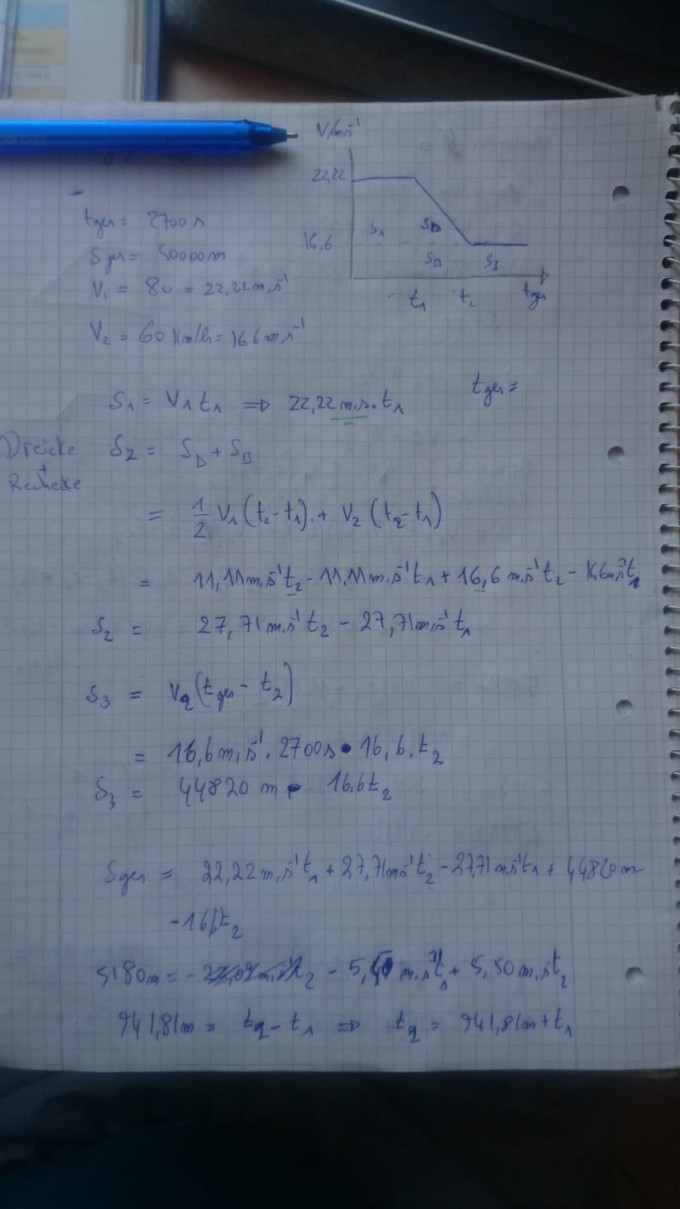 V/m s⁻¹
22,22
16,6
S₁
S▷
S□
S₃
t₁
t₂
tges
tges = 2700 s
Sges = 50000m
V₁ = 80 = 22,22 m,s⁻¹
V₂ = 60 Km/h = 166 m,s⁻¹
tges =
S₁ = V₁ t₁ ⇒ 22,22 m,s. t₁
Dreicke + Rechecke
S₂ = S▷ + S□
= 1/2 V₁ (t₂ - t₁) + V₂ (t₂ - t₁)
= 11,11 m,s⁻¹ t₂ - 11,11 m,s⁻¹ t₁ + 16,6 m,s⁻¹ t₂ - 16,6 m,s⁻¹ t₁
S₂ = 27,71 m,s⁻¹ t₂ - 27,71 m,s⁻¹ t₁
S₃ = V₂ (tges - t₂)
= 16,6 m,s⁻¹ . 2700 s - 16,6 . t₂
S₃ = 44820 m - 16,6 t₂
Sges = 22,22 m,s⁻¹ t₁ + 27,71 m s⁻¹ t₂ - 27,71 m,s⁻¹ t₁ + 44820 m
- 16,6 t₂
5180 m = - 5,50 m,s⁻¹ t₁ + 5,50 m,s t₂
941,81 m = t₂ - t₁ ⇒ t₂ = 941,81 m + t₁